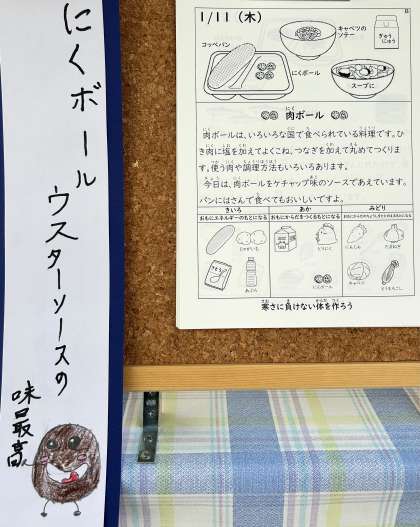 にくボール
ウスターソースの
味最高
1/11 (木)
キャベツの
ソテー
ぎゅう
にゅう
コッペパン
にくボール
スープに
肉ボール
肉ボールは、いろいろな国で食べられている料理です。ひ
き肉に塩を加えてよくこね、つなぎを加えて丸めてつくりま
す。使う肉や調理方法もいろいろあります。
今日は、肉ボールをケチャップ味のソースであえています。
パンにはさんで食べてもおいしいですよ。
きいろ
あか
みどり
おもにエネルギーのもとになる
おもにからだをつくるもとになる
おもにからだのちょうしをととのえるもとになる
じゃがいも
とりにく
にんじん
たまねぎ
あぶら
にくボール
キャベツ
とうもろこし
寒さに負けない体を作ろう